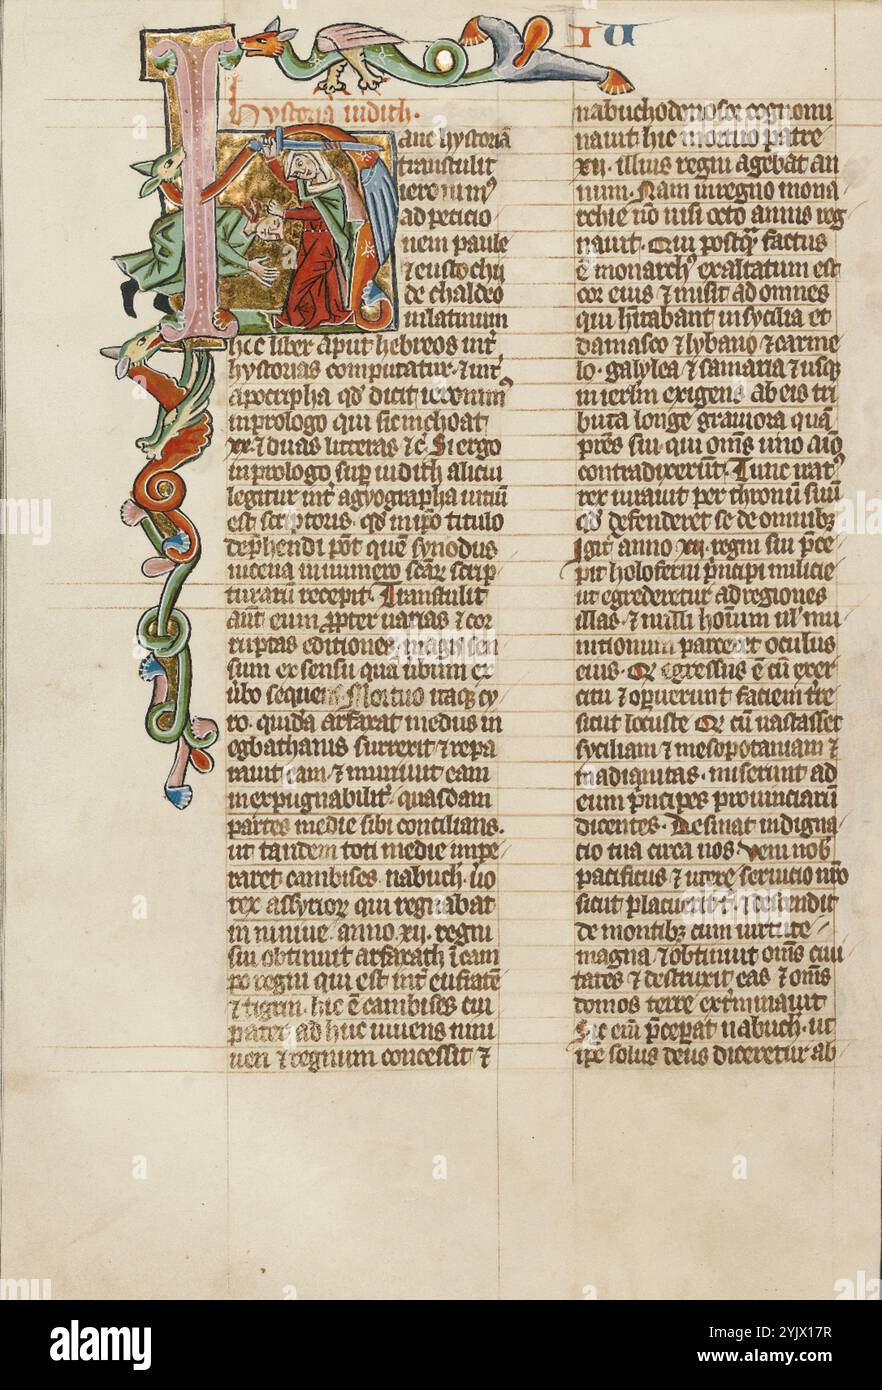 IU
hystoria iudith.
anc hystoria
transtulit
ieronimꝰ
ad peticio
nem paule
⁊ eustochii
de chaldeo
in latinum
hec liber aput hebreos int᷑
hystorias computatur· ⁊ int᷑
apocripha qđ dicit ieronimꝰ
in prologo qui sic inchoat
xx· ⁊ duas litteras ⁊c̄ Si ergo
in prologo sup̱ iudith alicui
legitur int᷑ agyographa uitiū
est scriptoris· qđ in ip̄o titulo
dep̱hendi pōt quē synodus
nicena in numero scāꝝ scrip
turarū recepit· Transtulit
aūt eum ꝓpter uarias ⁊ cor
ruptas editiones magis sen
sum ex sensu quā ūbum ex
ūbo sequens Mortuo itaqꝫ cy
ro· quidā arfaxat medus in
egbathanis surrexit ⁊ repa
rauit eam· ⁊ muniuit eam
inexpugnabilit᷑· quasdam
partes medie sibi concilians·
ut tandem toti medie impe
raret cambises· nabuch· ūo
rex assyrioꝝ qui regnabat
in niniue· anno· xii· regni
sui obtinuit arfaxath ī cam
po regni qui est int᷑ eufratē
⁊ tigrin· hic ē cambises cui
pater ad huc uiuens nini
uen ⁊ regnum concessit ⁊
nabuchodenosor cognomi
nauit hic mortuo patre
xii· illius regni agebat an
num· Nam in regno mona
rchie nō nisi octo annis reg
nauit· Qui postꝙ factus
ē monarchꝰ exaltatum est
cor eius ⁊ misit ad omnes
qui hītabant in sycilia et
damasco ⁊ lybano ⁊ carme
lo· galylea ⁊ samaria ⁊ usqꝫ
in ierlm̄ exigens ab eis tri
buta longe grauiora quā
pr̄es sui· qui om̄s uno aīo
contradixerūt· Tunc iratꝰ
rex iurauit per thronū suū
qđ defenderet se de omnibꝫ
Igit᷑ anno xii· regni sui p̄ce
pit holoferni p̄ncipi milicie
ut egrederetur ad regiones
illas· ⁊ nulli hoīum ul' mu
nitionum parceret oculus
eius· Qui egressus ē cū exer
citu ⁊ op̱uerunt faciem tr̄e
sicut locuste Qui cū uastasset
syciliam ⁊ mesopotaniam ⁊
madianitas· miserunt ad
eum p̄ncipes prouinciarū
dicentes· Desinat indigna
cio tua circa nos· veni nob̄
pacificus ⁊ utere seruicio nr̄o
sicut placuerit t᷑· ⁊ descendit
de montibꝫ cum uirtute
magna ⁊ obtinuit om̄s ciui
tates ⁊ destruxit eas ⁊ om̄s
domos terre ext᷑minauit
Sic eni̅ p̄cep̱at nabuch· ut
ip̄e solus deus diceretur ab
alamy
www.alamy.com
Image ID: 2YJX17R